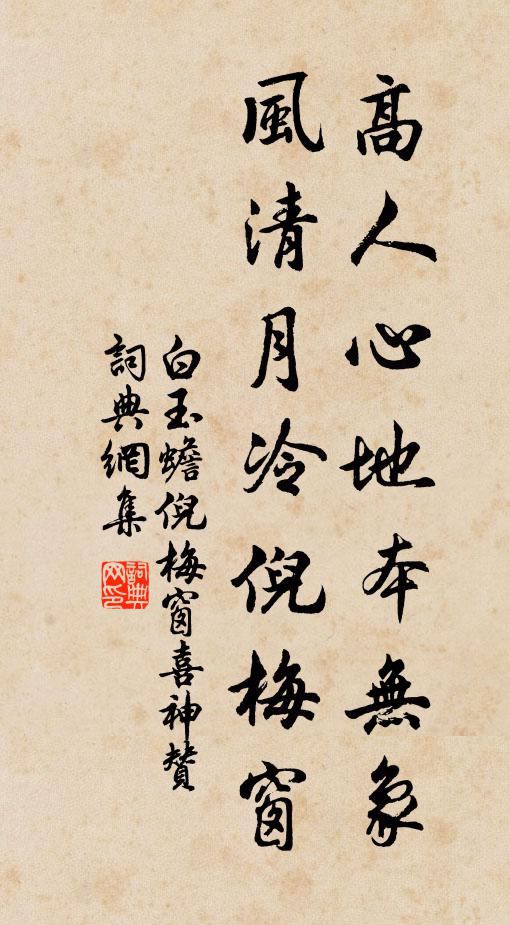 高人心地本無象
風清月冷倪梅窗
白玉蟾倪梅窗喜神贊
詞典網集
詞典
网印